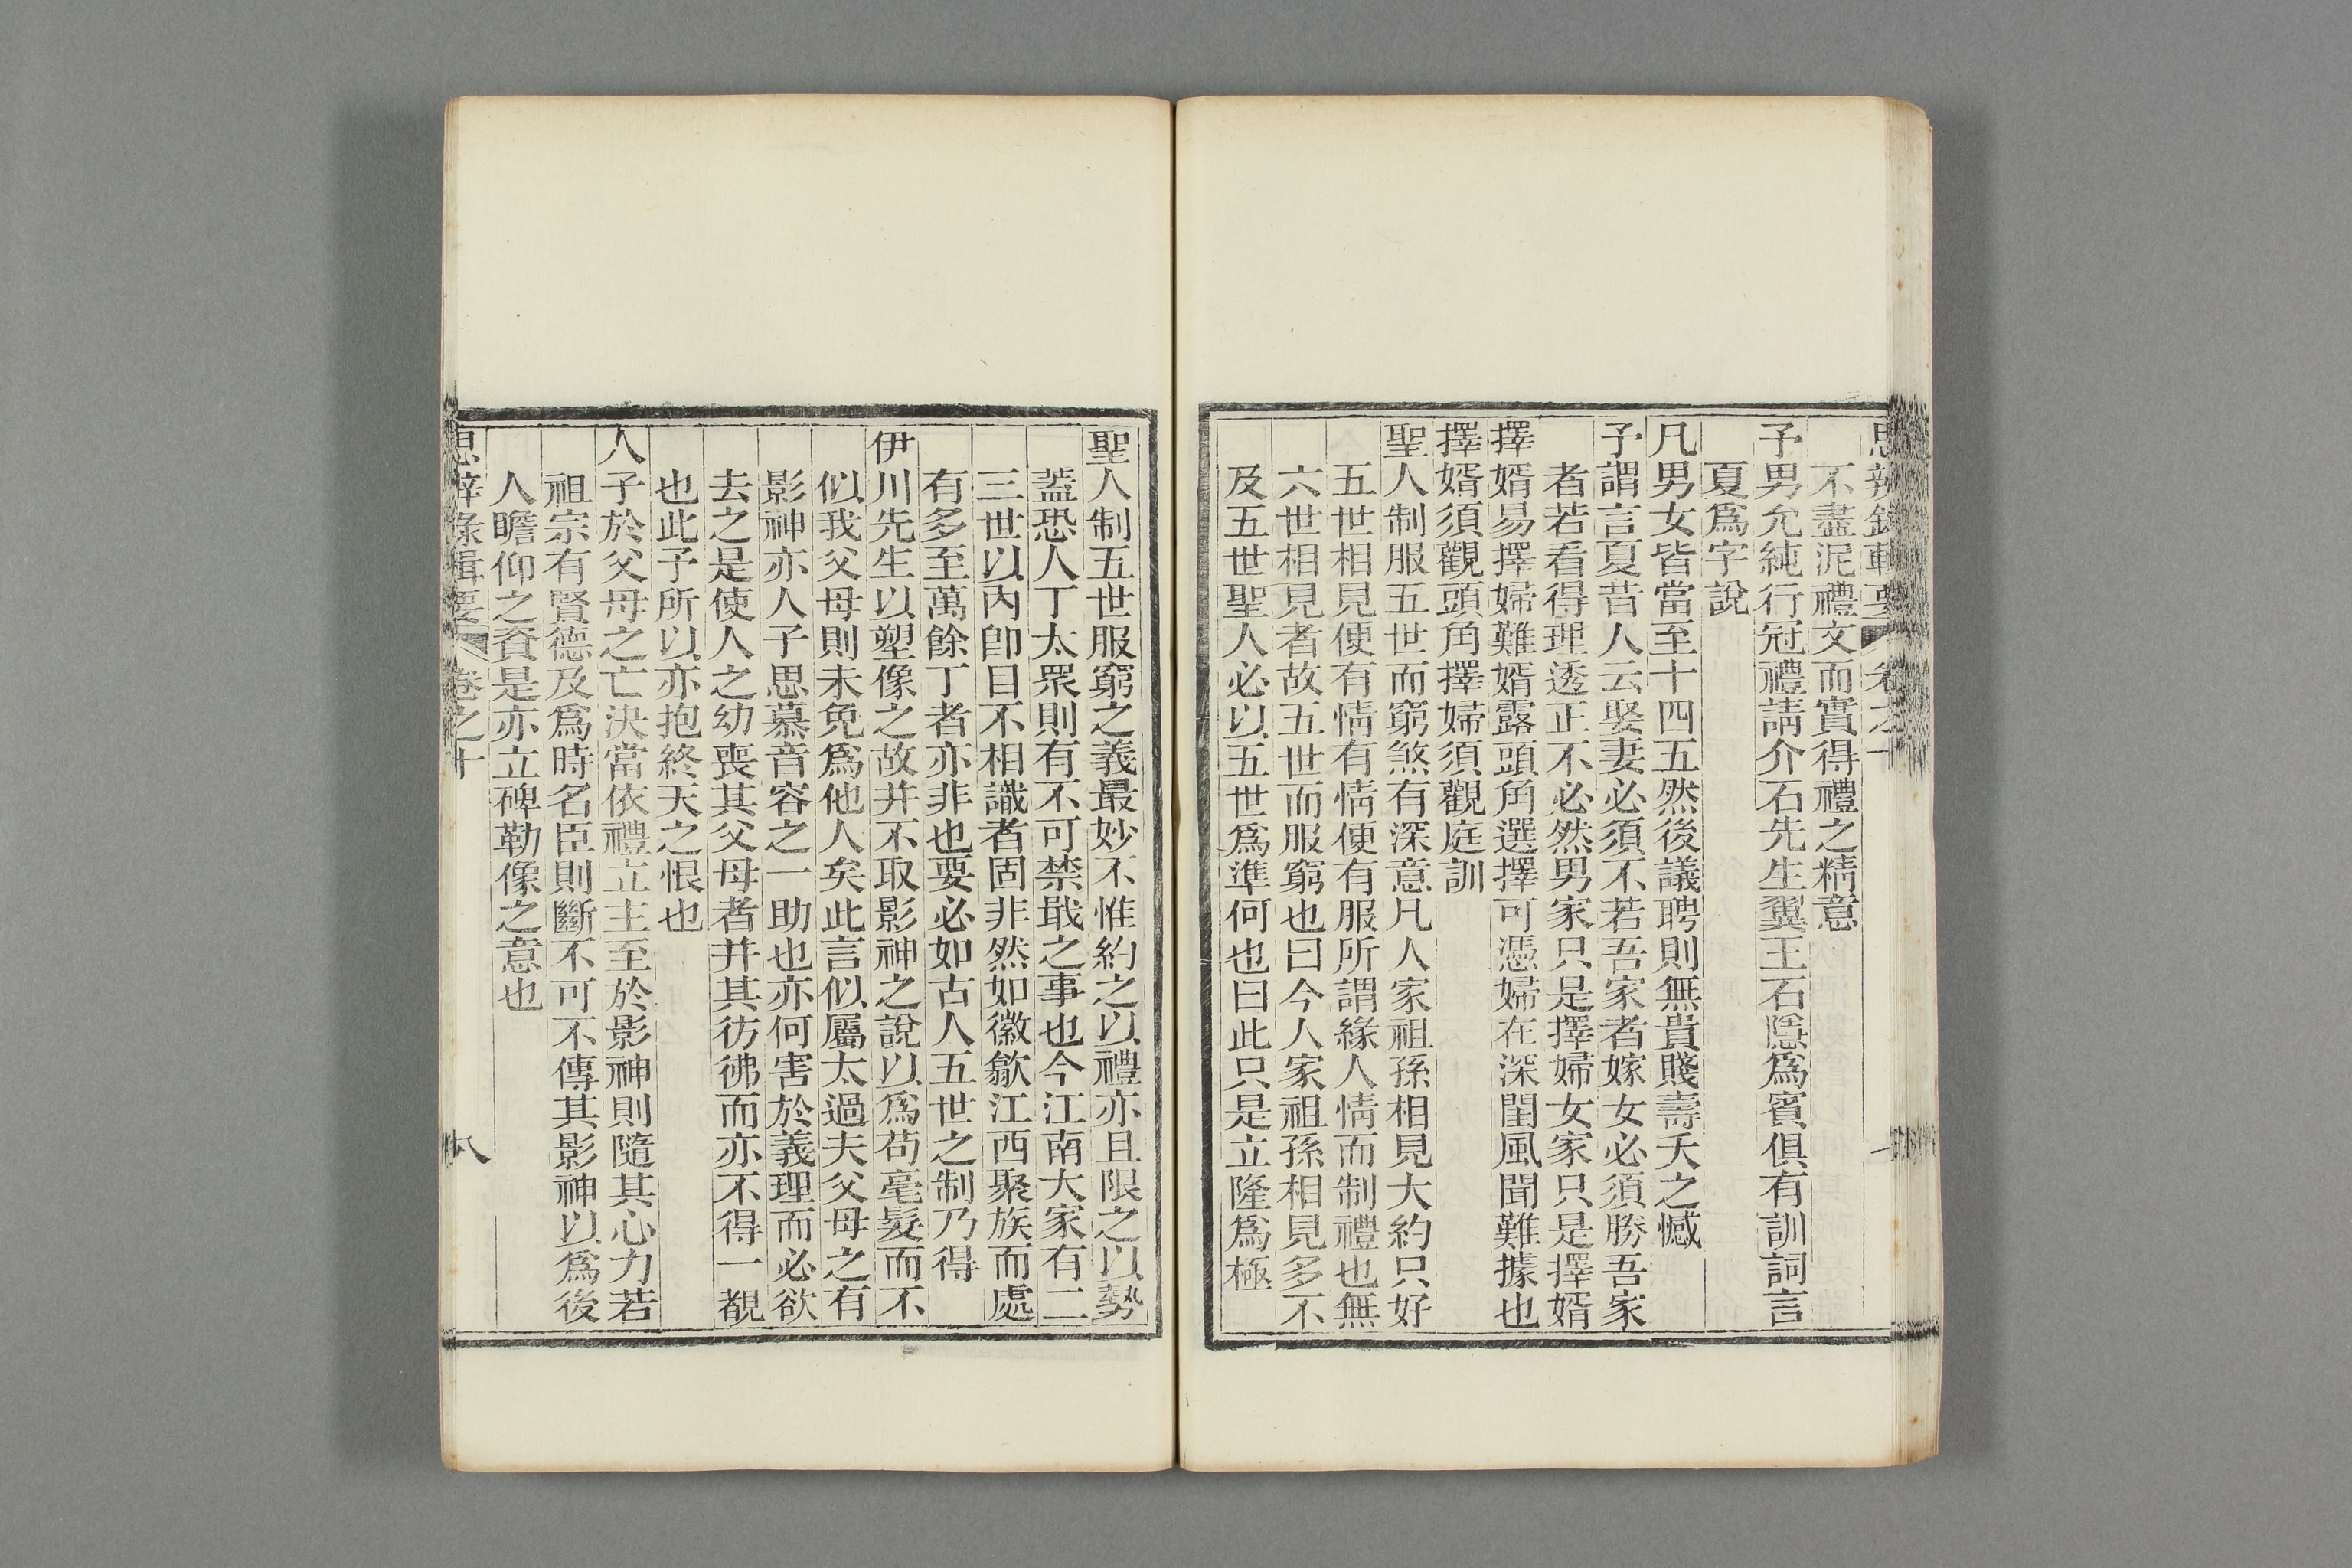 思辨錄輯要 卷之十
不盡泥禮文而實得禮之精意
予男允純行冠禮請介石先生翼王石隱爲賓俱有訓詞言
夏爲字說
凡男女皆當至十四五然後議聘則無貴賤壽夭之憾
予謂言夏昔人云娶妻必須不若吾家者嫁女必須勝吾家
者若看得理透正不必然男家只是擇婦女家只是擇婿
擇婿易擇婦難婿露頭角選擇可憑婦在深閨風聞難據也
擇婿須觀頭角擇婦須觀庭訓
聖人制服五世而窮煞有深意凡人家祖孫相見大約只好
五世相見便有情有情便有服所謂緣人情而制禮也無
六世相見者故五世而服窮也曰今人家祖孫相見多不
及五世聖人必以五世爲準何也曰此只是立隆爲極
聖人制五世服窮之義最妙不惟約之以禮亦且限之以勢
蓋恐人丁太眾則有不可禁戢之事也今江南大家有二
三世以內卽目不相識者固非然如徽歙江西聚族而處
有多至萬餘丁者亦非也要必如古人五世之制乃得
伊川先生以塑像之故并不取影神之說以爲苟毫髮而不
似我父母則未免爲他人矣此言似屬太過夫父母之有
影神亦人子思慕音容之一助也亦何害於義理而必欲
去之是使人之幼喪其父母者并其彷彿而亦不得一覩
也此予所以亦抱終天之恨也
人子於父母之亡決當依禮立主至於影神則隨其心力若
祖宗有賢德及爲時名臣則斷不可不傳其影神以爲後
人瞻仰之資是亦立碑勒像之意也
思辨錄輯要 卷之十 八